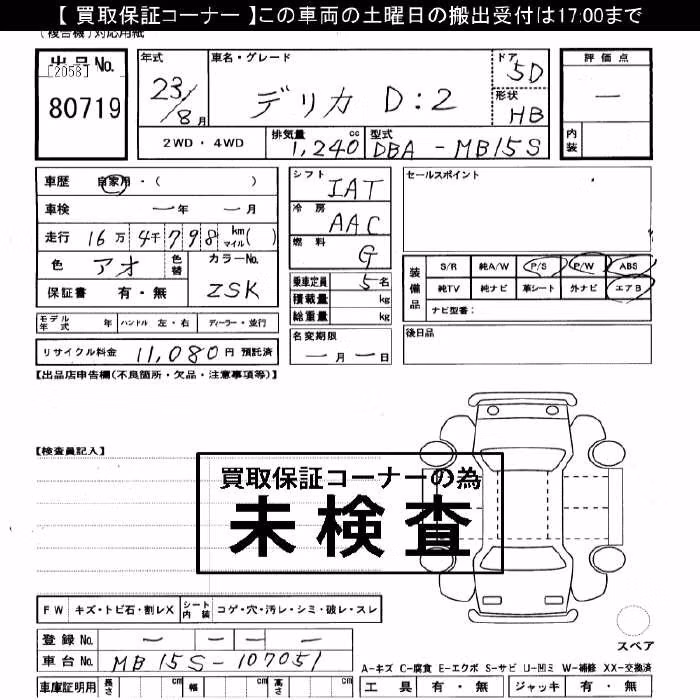 【 買取保証コーナー 】この車両の土曜日の搬出受付は17:00まで
(複合機)対応用紙
出品No.
[2058]
80719
年式
23/8月
車名・グレード
デリカ D:2
ドア
5D
形状
HB
評価点
—
内装
2WD・4WD
排気量
1,240 cc
型式
DBA - MB15S
車歴 自家用・( )
車検 —年 —月
走行 16万4千798 km マイル( )
色 アオ 色替
カラーNo.
ZSK
保証書 有・無
シフト
IAT
冷房
AAC
燃料
G
乗車定員 5名
積載量 kg
総重量 kg
セールスポイント
装備品
S/R 純A/W P/S P/W ABS
純TV 純ナビ 革シート 外ナビ エアB
ナビ型番:
モデル年式 年 ハンドル 左・右 ディーラー・並行
名変期限
—月—日
後日品
リサイクル料金 11,080円 預託済
【出品店申告欄(不良箇所・欠品・注意事項等)】
【検査員記入】
買取保証コーナーの為
未検査
FW キズ・トビ石・割レX シート内装 コゲ・穴・汚レ・シミ・破レ・スレ
登録No. — — — —
車台No. MB15S-107051
スペア
A-キズ C-腐食 E-エクボ S-サビ U-凹ミ W-補修 XX-交換済
車庫証明用 長さ cm 幅 cm 高さ cm
工具 有・無 ジャッキ 有・無